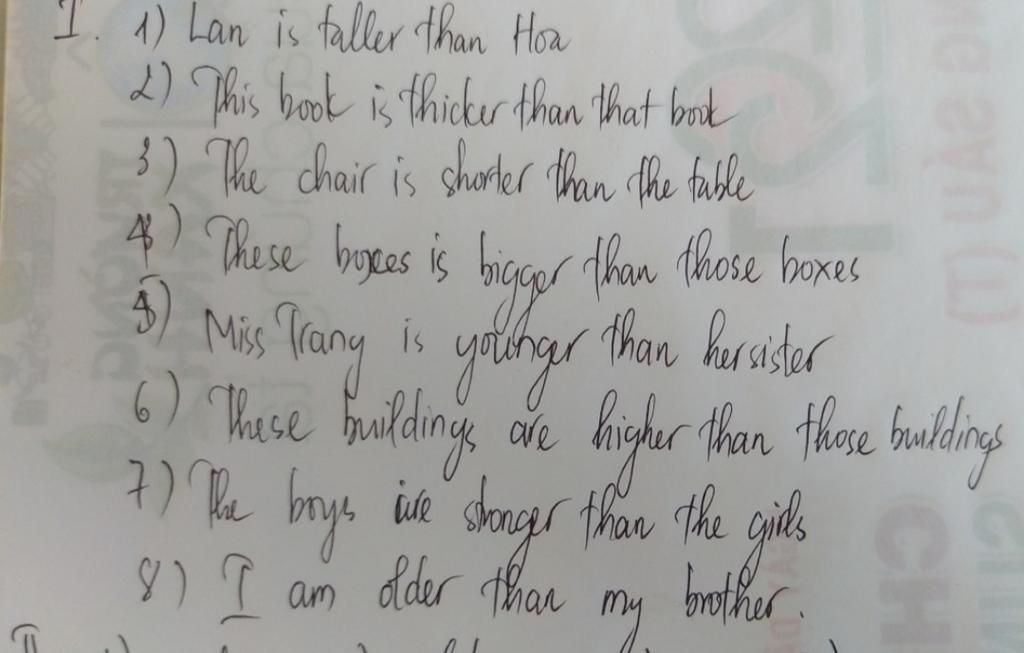 I. 1) Lan is taller than Hoa
2) This book is thicker than that book
3) The chair is shorter than the table
4) These boxes is bigger than those boxes
5) Miss Trang is younger than her sister
6) These buildings are higher than those buildings
7) The boys are stronger than the girls
8) I am older than my brother.
II